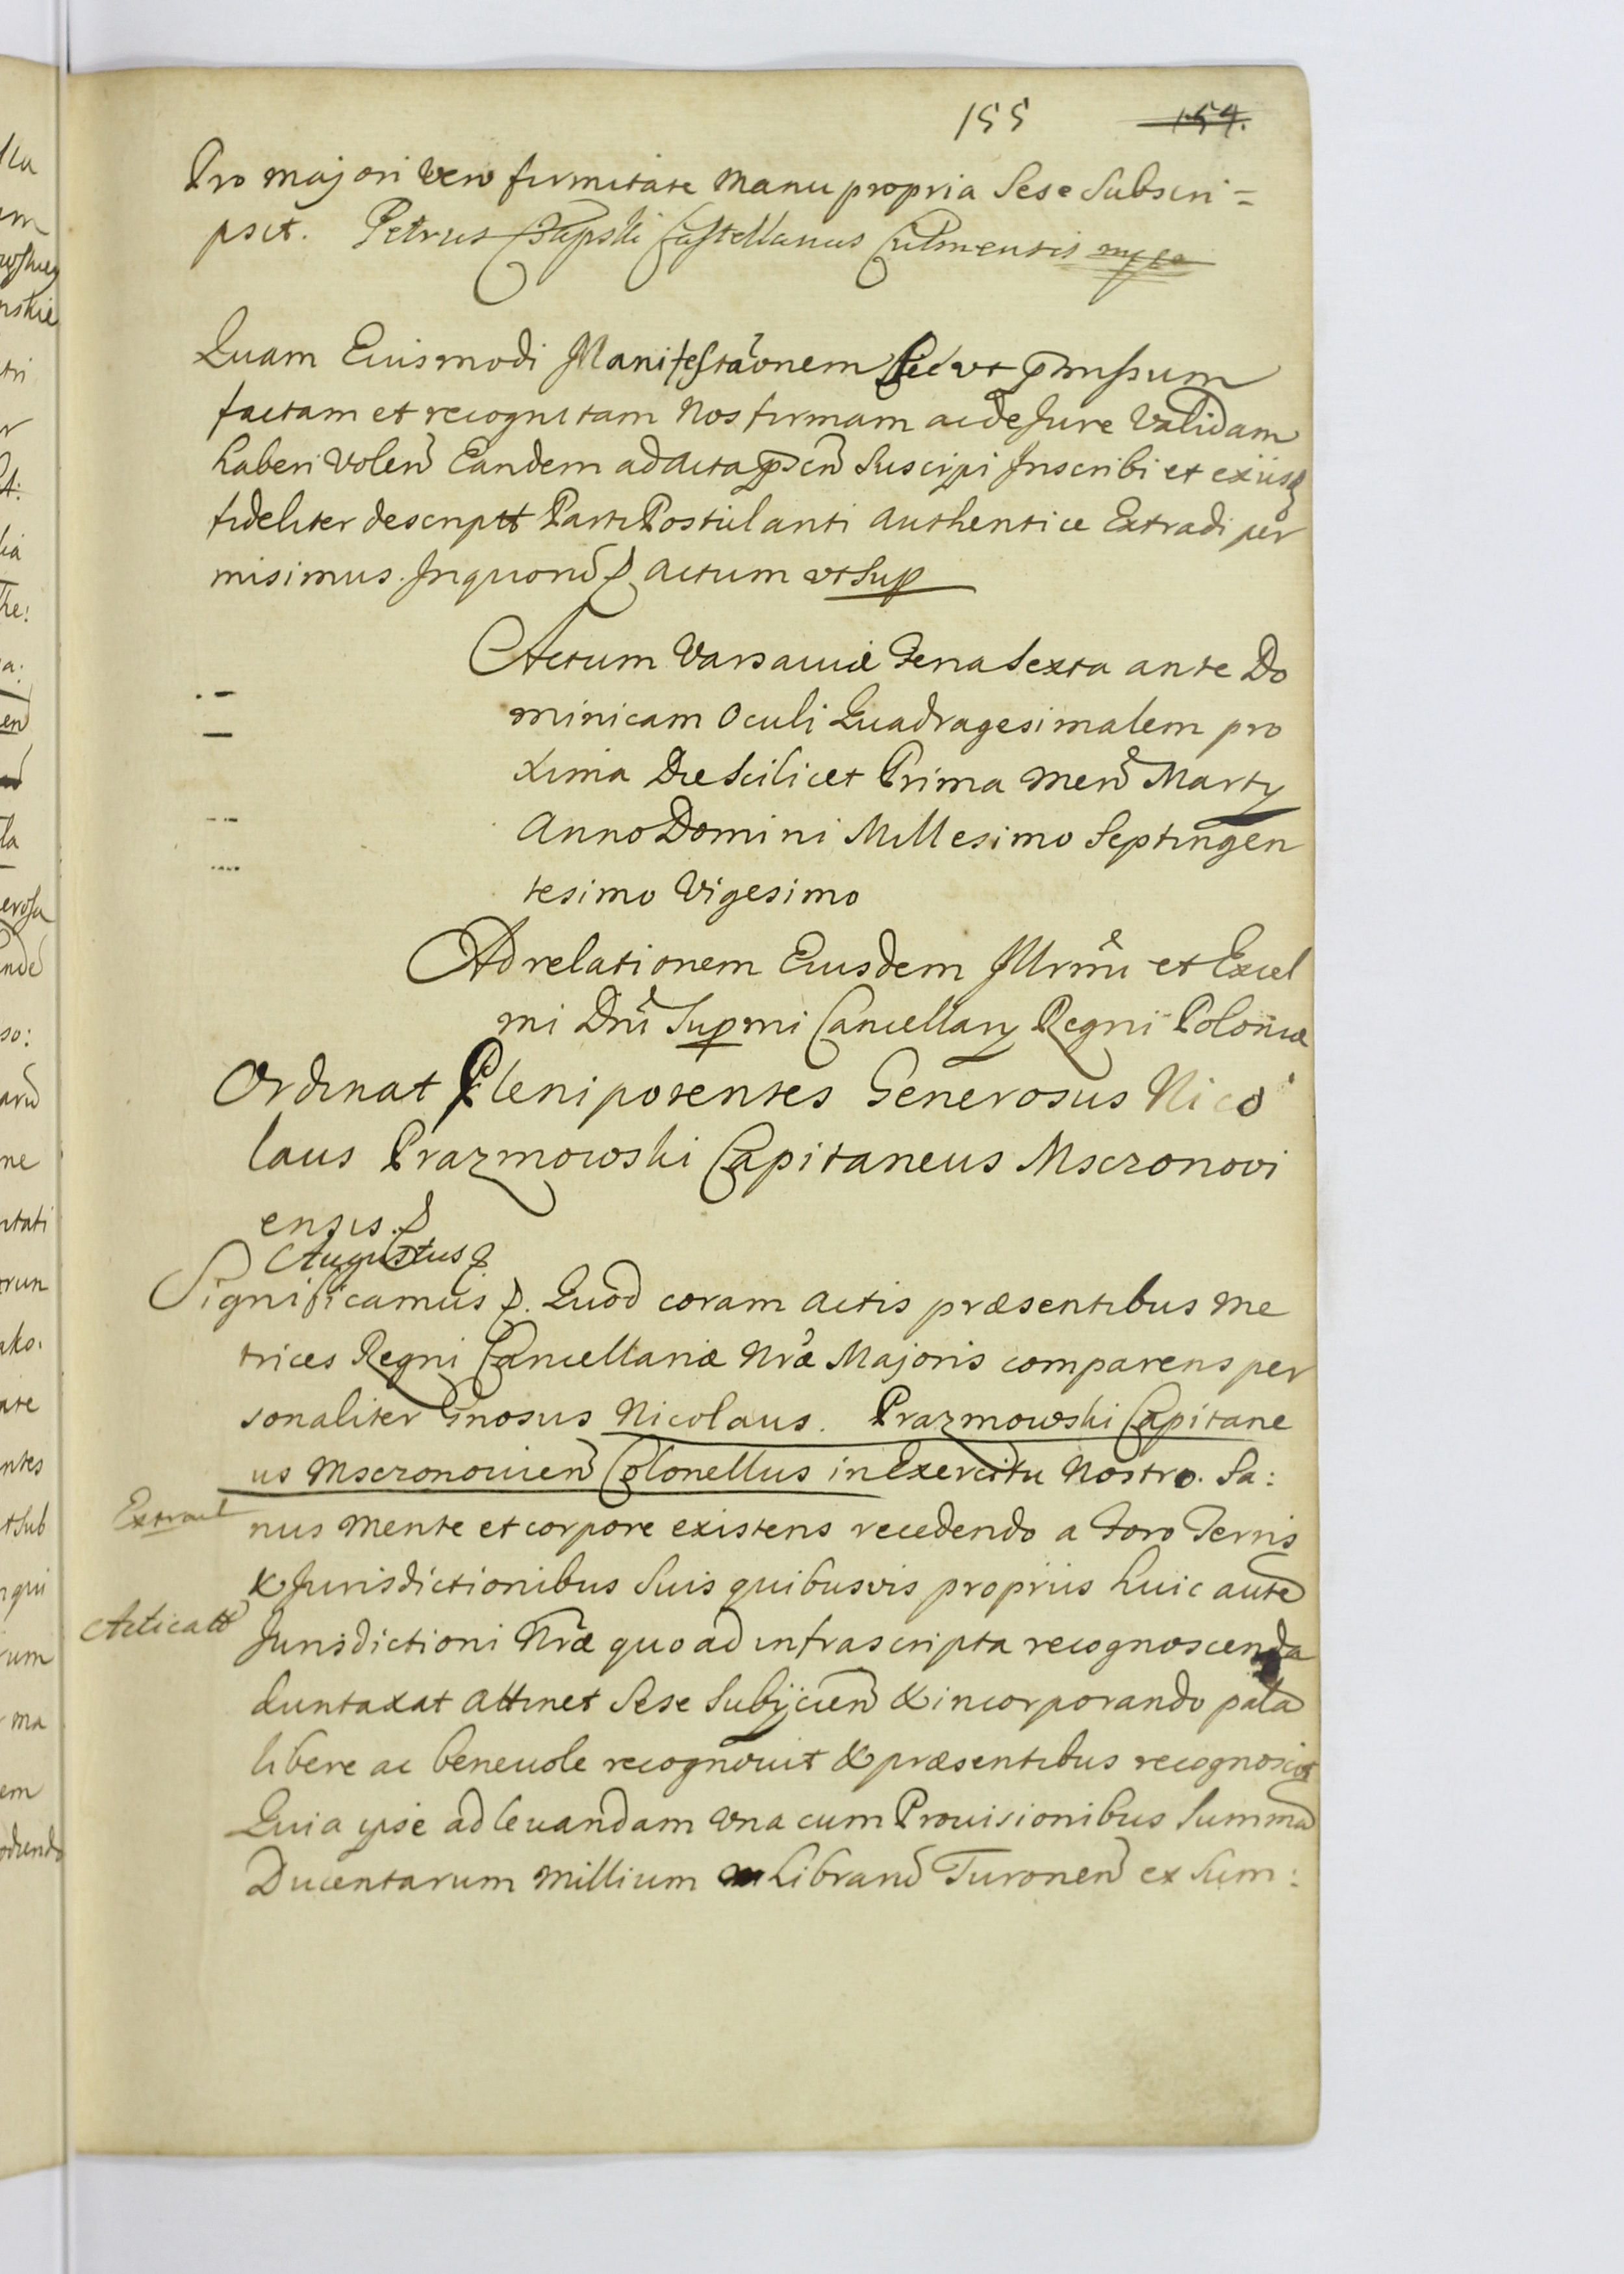 155 154.
Pro majori vero firmitate manu propria Sese Subscri=
psit. Petrus Czapski Castellanus Culmensis mpp
Quam Eiusmodi Manifestãonem sic ut p̃missum
factam et recognitam Nos firmam ac de Jure Validam
haberi Volen̄ Eandem ad Acta p̃sen̄ Suscipi Inscribi et ex iisq
fideliter descriptt Parti Postulanti Authentice Extradi per
misimus. In quorū Actum ut Sup
Actum Varsaviæ Feria Sexta ante Do
minicam Oculi Quadragesimalem pro
xima Die Scilicet Prima Men̄ Martÿ
Anno Domini Millesimo Septingen
tesimo Vigesimo
Ad relationem Eiusdem Illrmi et Excel
mi Dni Supmi Cancellarÿ Regni Poloniæ
Ordinat Plenipotentes Generosus Nico
laus Prazmowski Capitaneus Mscronovi
ensis.
Augustus
Significamus. Quod coram Actis præsentibus Me
trices Regni Cancellariæ Nræ Majoris comparens per
sonaliter Gnosus Nicolaus. Prazmowski Capitane
us Mscronovien̄ Colonellus in Exercitu Nostro. Sa:
Extract
nus Mente et corpore existens recedendo a Foro Terris
& Jurisdictionibus Suis quibusvis propriis huic autē
Acticatt
Jurisdictioni Nræ quo ad infrascripta recognoscenda
duntaxat Attinet Sese Subÿcien̄ & incorporando palā
libere ac benevole recognovit & præsentibus recognoscit
Quia ipse ad levandam Una cum Provisionibus Summā
Ducentarum Millium Librarū Turonen̄ ex Sum: